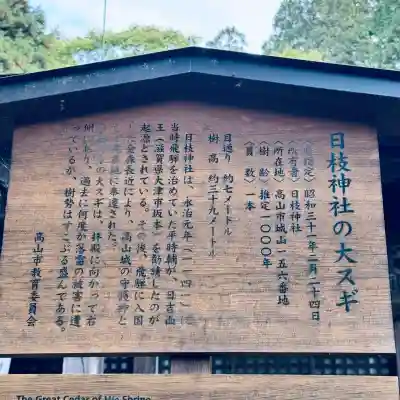 日枝神社の大スギ
指定〉昭和三十一年二月二十四日
〈所有者〉日枝神社
〈所在地〉高山市城山一五六番地
樹齢 推定一、〇〇〇年
〈員数〉一本
目通り 約七メートル
樹高 約三十九メートル
日枝神社は、永治元年(一一四一)
当時飛騨を治めていた平時輔が、日吉山
王(滋賀県大津市坂本)を勧請したのが
起源とされている。その後、飛騨に入国
金森長近により、高山城の守護神と
に奉遷された。
大スギは、拝殿に向かって右
側にあり、過去に何度か落雷の被害に遭
っているが、樹勢はすこぶる盛んである。
高山市教育委員会
The Great Cedar of Hie Shrine